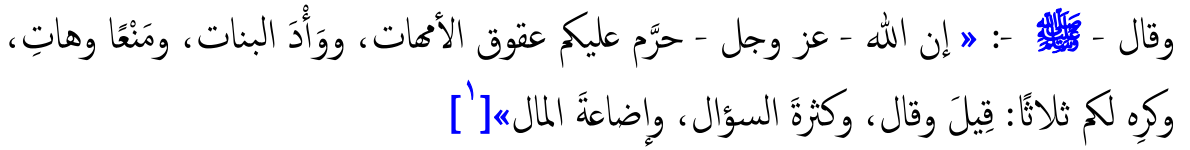 وقال - ﷺ -: « إن الله - عز وجل - حرَّم عليكم عقوق الأمهات، ووَأْدَ البنات، ومَنْعًا وهاتِ،
وكرِه لكم ثلاثًا: قِيلَ وقال، وكثرةَ السؤال، وإضاعةَ المال»[١]